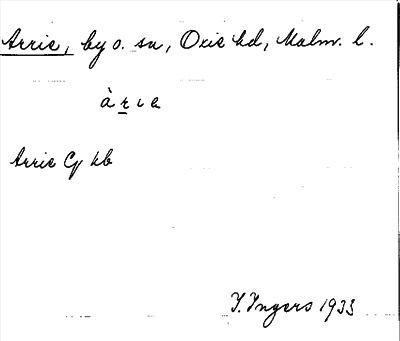 Arrie, by o. sn, Oxie hd, Malm. l.
àrıe
Arrie Cg kb
I. Ingers 1933